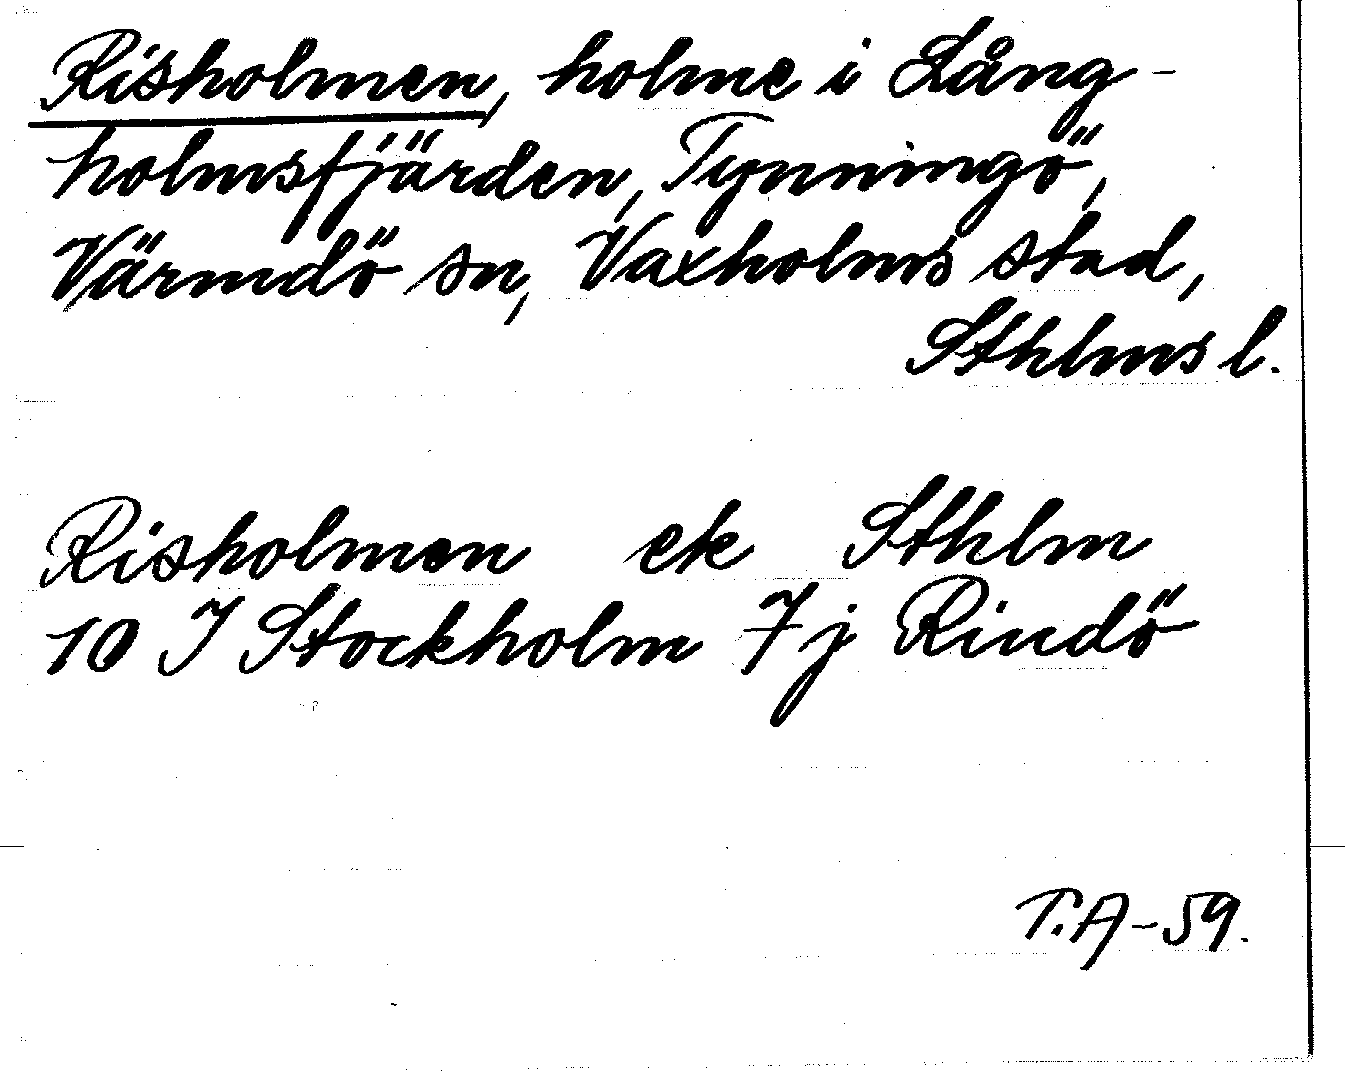 Risholmen, holme i Lång-
holmsfjärden, Tynningö,
Värmdö sn, Vaxholms stad,
Sthlms l.
Risholmen ek Sthlm
10 I Stockholm 7j Rindö
T.A-59.